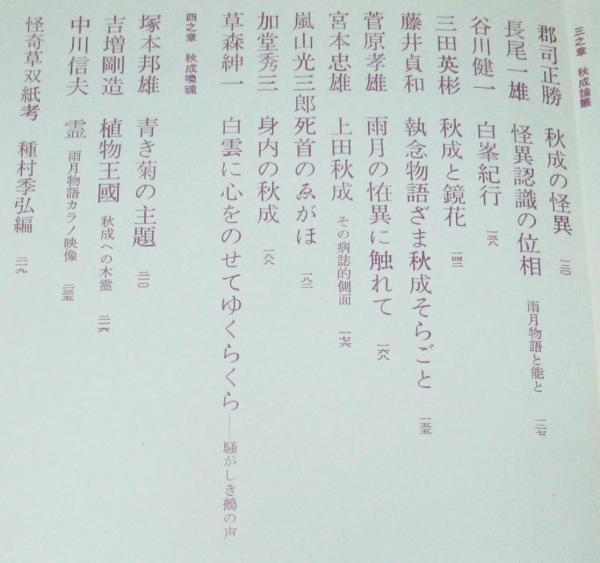 三之章 秋成論叢
郡司正勝 秋成の怪異 一二〇
長尾一雄 怪異認識の位相 雨月物語と能と 一二七
谷川健一 白峯紀行 一三八
三田英彬 秋成と鏡花 一四二
藤井貞和 執念物語ざま秋成そらごと 一五五
菅原孝雄 雨月の恠異に触れて 一六八
宮本忠雄 上田秋成 その病誌的側面 一七六
嵐山光三郎 死首のゑがほ 一八二
加堂秀三 身内の秋成 一八八
草森紳一 白雲に心をのせてゆくらくら——騒がしき鵺の声
四之章 秋成喚魂
塚本邦雄 青き菊の主題 二一〇
吉増剛造 植物王國 秋成への木霊 二一六
中川信夫 霊 雨月物語カラノ映像 二三五
怪奇草双紙考 種村季弘編 二一九